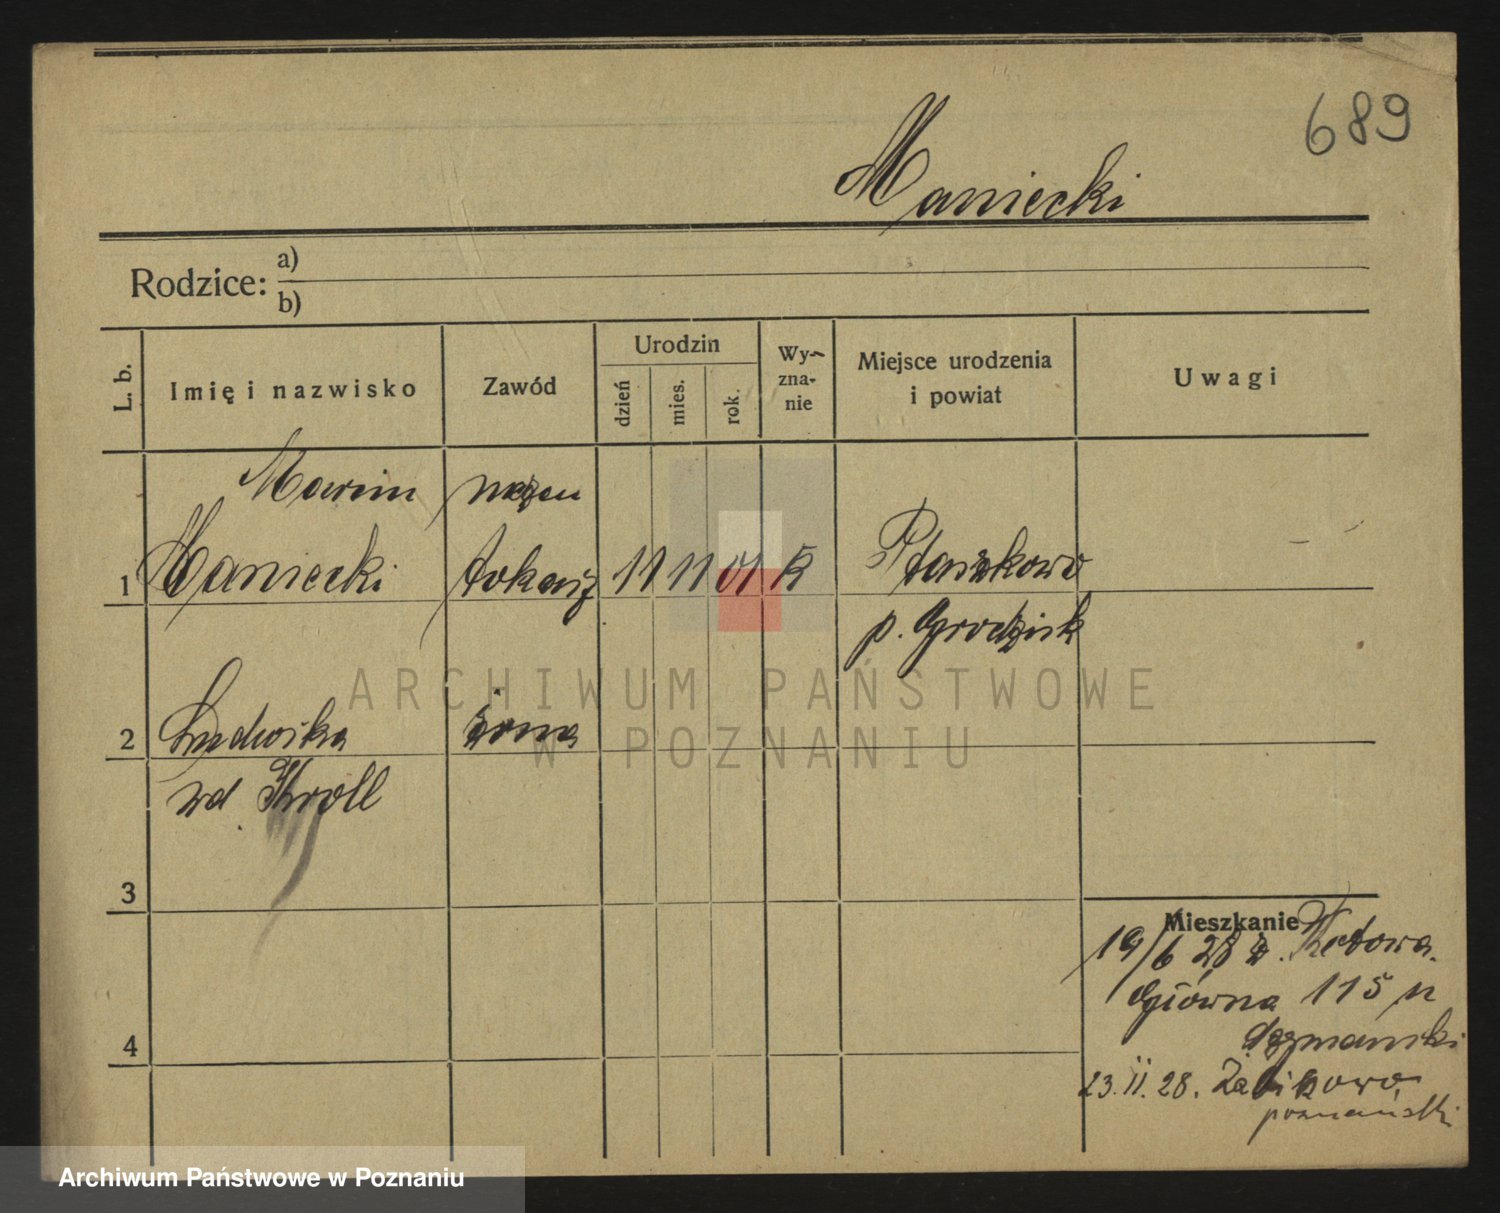 689
Maniecki
Rodzice: a)
b)
L. b.
Imię i nazwisko
Zawód
Urodzin
dzień
mies.
rok.
Wy-
zna-
nie
Miejsce urodzenia
i powiat
Uwagi
Marcin
1 Maniecki tokarz 11 11 01 K Ptaszkowo
p. Grodzisk
2 Ludwika żona
zd Kroll
3
4
Mieszkanie
19/6 28 z.
Główna 115
23.II.28. Żabikowo
poznański
ARCHIWUM PAŃSTWOWE
W POZNANIU
Archiwum Państwowe w Poznaniu